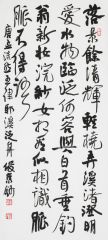 落景餘清輝輕橈弄溪渚澄明
愛水物臨泛何容與白首垂釣
翁新妝浣紗女相看似相識脈
脈不得語